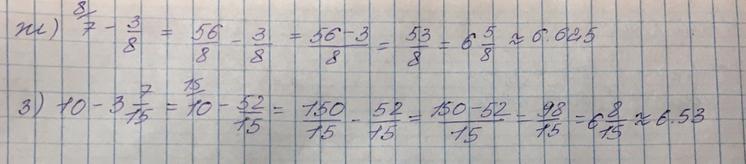 ж) ⁸⁄7 - 3/8 = 56/8 - 3/8 = 56-3/8 = 53/8 = 6 5/8 ≈ 6.625
з) 10 - 3 7/15 = ¹⁵⁄10 - 52/15 = 150/15 - 52/15 = 150-52/15 = 98/15 = 6 8/15 ≈ 6.53